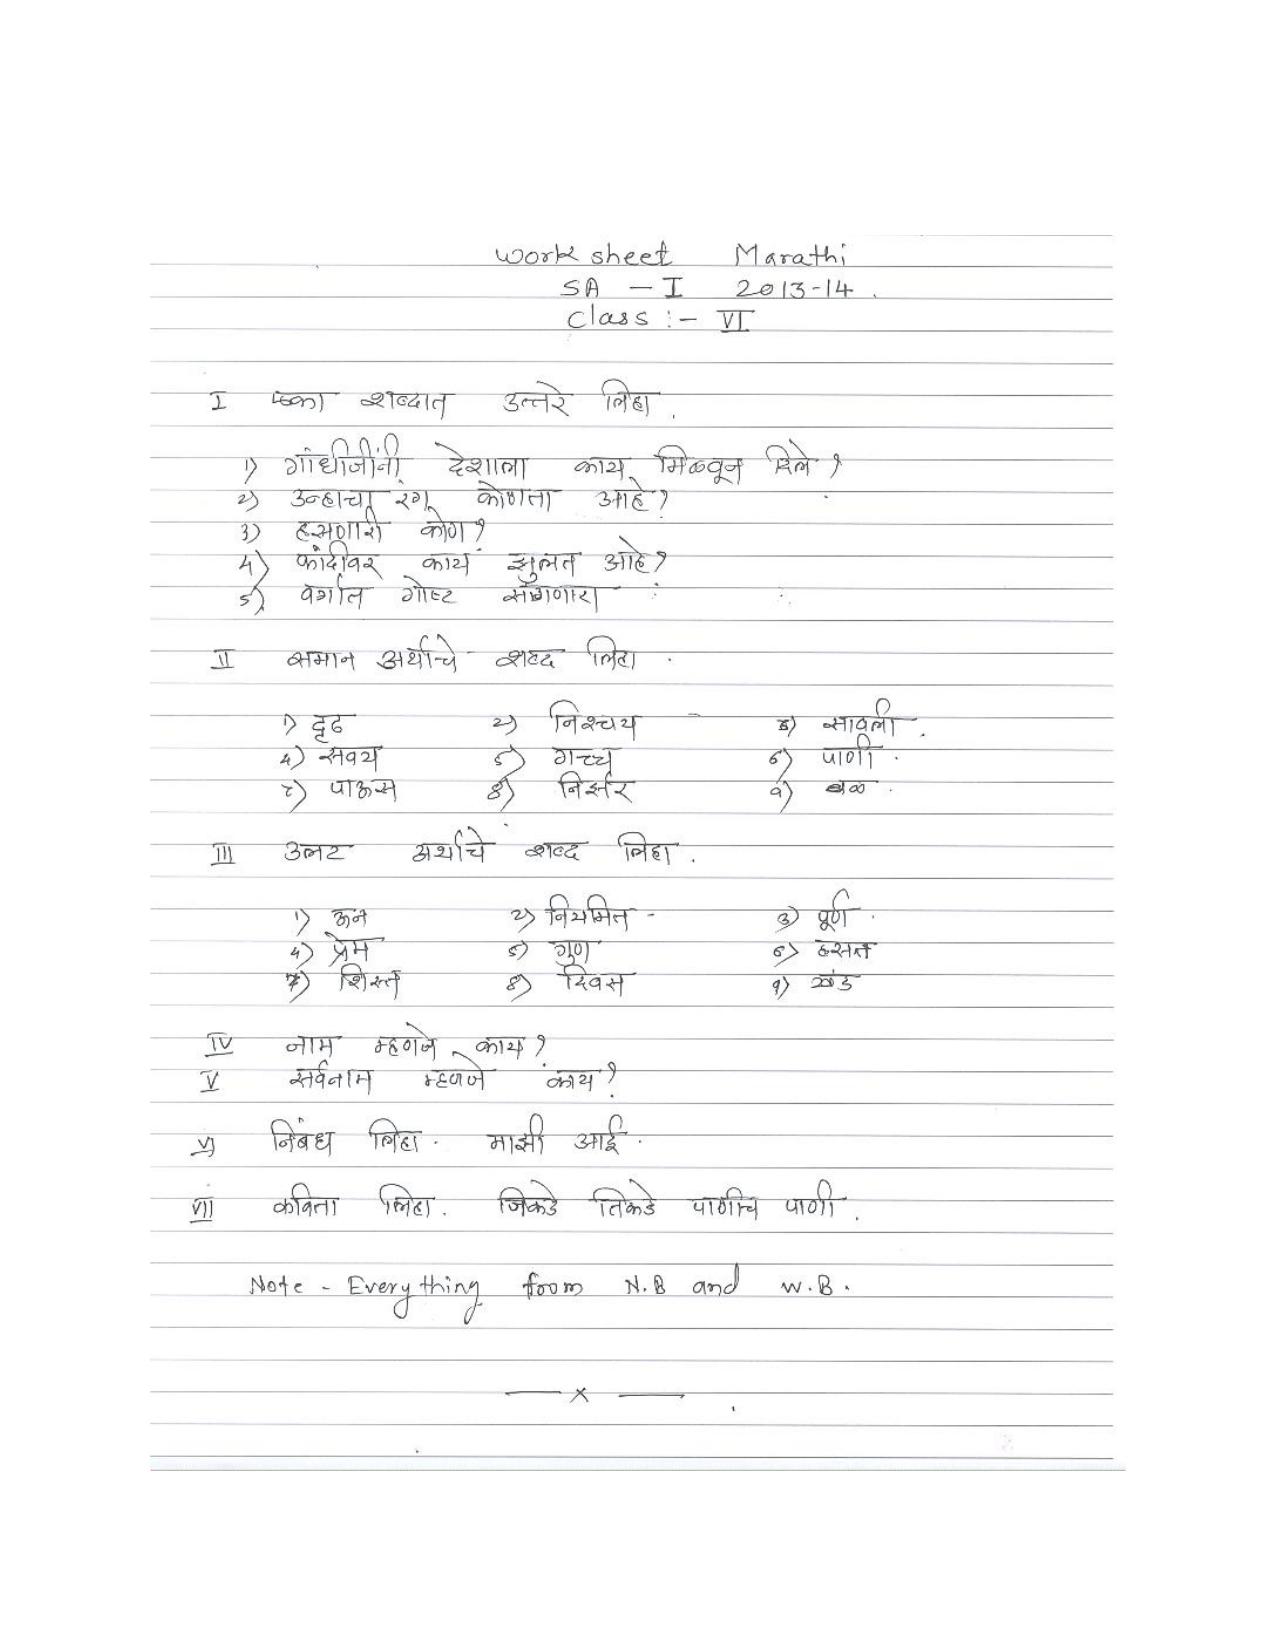 Work sheet Marathi
SA - I 2013-14.
Class :- VI
I एका शब्दात उत्तरे लिहा.
1) गांधीजींनी देशाला काय मिळवून दिले?
2) उन्हाचा रंग कोणता आहे?
3) हसणारी कोण?
4) फांदीवर काय झुलत आहे?
5) वर्गात गोष्ट सांगणारा
II समान अर्थाचे शब्द लिहा.
1) दृढ 2) निश्चय 3) सावली.
4) सवय 5) गच्च 6) पाणी.
7) पाऊस 8) निर्झर 9) बळ.
III उलट अर्थाचे शब्द लिहा.
1) ऊन 2) नियमित - 3) पूर्ण.
4) प्रेम 5) गुण 6) हसत
7) शिस्त 8) दिवस 9) खंड
IV नाम म्हणजे काय?
V सर्वनाम म्हणजे काय?
VI निबंध लिहा. माझी आई.
VII कविता लिहा. जिकडे तिकडे पाणीच पाणी.
Note - Everything from N.B and W.B.
— x —